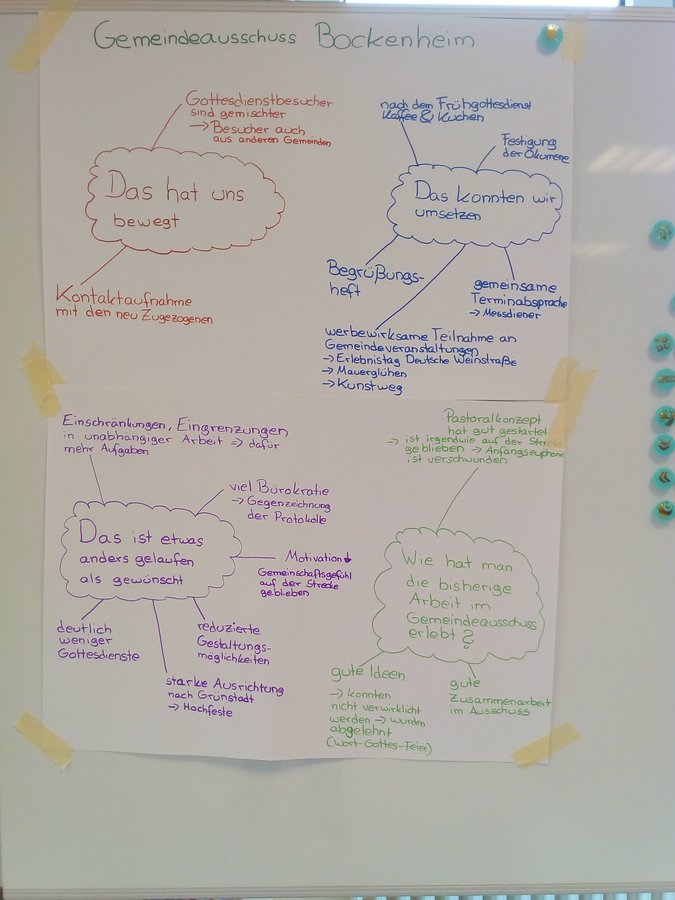 Gemeindeausschuss Bockenheim
Gottesdienstbesucher
sind gemischter
→ Besucher auch
aus anderen Gemeinden
Das hat uns
bewegt
Kontaktaufnahme
mit den neu Zugezogenen
nach dem Frühgottesdienst
Kaffee & Kuchen
Festigung
der Ökumene
Das konnten wir
umsetzen
Begrüßungs-
heft
gemeinsame
Terminabsprache
→ Messdiener
werbewirksame Teilnahme an
Gemeindeveranstaltungen
→ Erlebnistag Deutsche Weinstraße
→ Mauerglühen
→ Kunstweg
Einschränkungen, Eingrenzungen
in unabhängiger Arbeit => dafür
mehr Aufgaben
viel Bürokratie
→ Gegenzeichnung
der Protokolle
Das ist etwas
anders gelaufen
als gewünscht
Motivation ↓
Gemeinschaftsgefühl
auf der Strecke
geblieben
deutlich
weniger
Gottesdienste
reduzierte
Gestaltungs-
möglichkeiten
starke Ausrichtung
nach Grünstadt
→ Hochfeste
Pastoralkonzept
hat gut gestartet
→ ist irgendwie auf der Strecke
geblieben → Anfangseuphorie
ist verschwunden
Wie hat man
die bisherige
Arbeit im
Gemeindeausschuss
erlebt?
gute Ideen
→ konnten
nicht verwirklicht
werden → wurden
abgelehnt
(Wort-Gottes-Feier)
gute
Zusammenarbeit
im Ausschuss